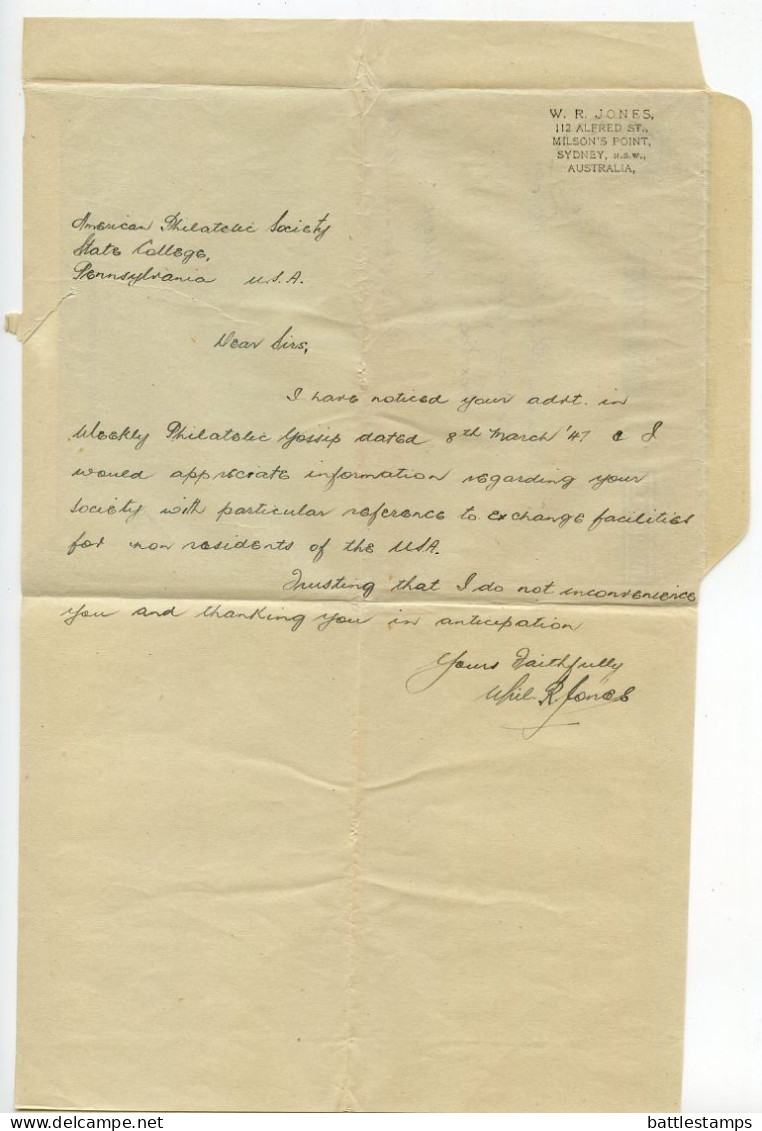 W. R. JONES,
112 ALFRED ST.,
MILSON'S POINT,
SYDNEY, N.S.W.,
AUSTRALIA,
American Philatelic Society
State College,
Pennsylvania U.S.A.
Dear Sirs,
I have noticed your advt. in
Weekly Philatelic Gossip dated 8th March '47 & I
would appreciate information regarding your
society with particular reference to exchange facilities
for non residents of the USA.
Trusting that I do not inconvenience
you and thanking you in anticipation
Yours Faithfully
R. Jones
delcampe.net
battlestamps